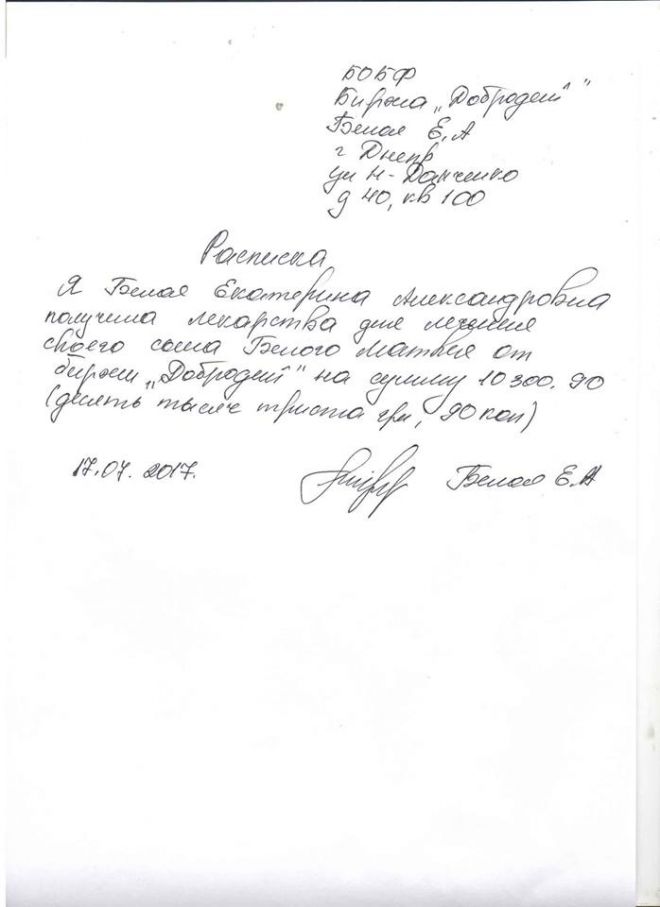 БОБФ
Биржа „Добродей"
Белая Е.А
г Днепр
ул Н-Данченко
д 40, кв 100
Расписка
Я Белая Екатерина Александровна
получила лекарства для лечения
своего сына Белого Матвея от
биржи „Добродей" на сумму 10 300. 90
(десять тысяч триста грн, 90 коп)
17.07. 2017. Белая Е.А